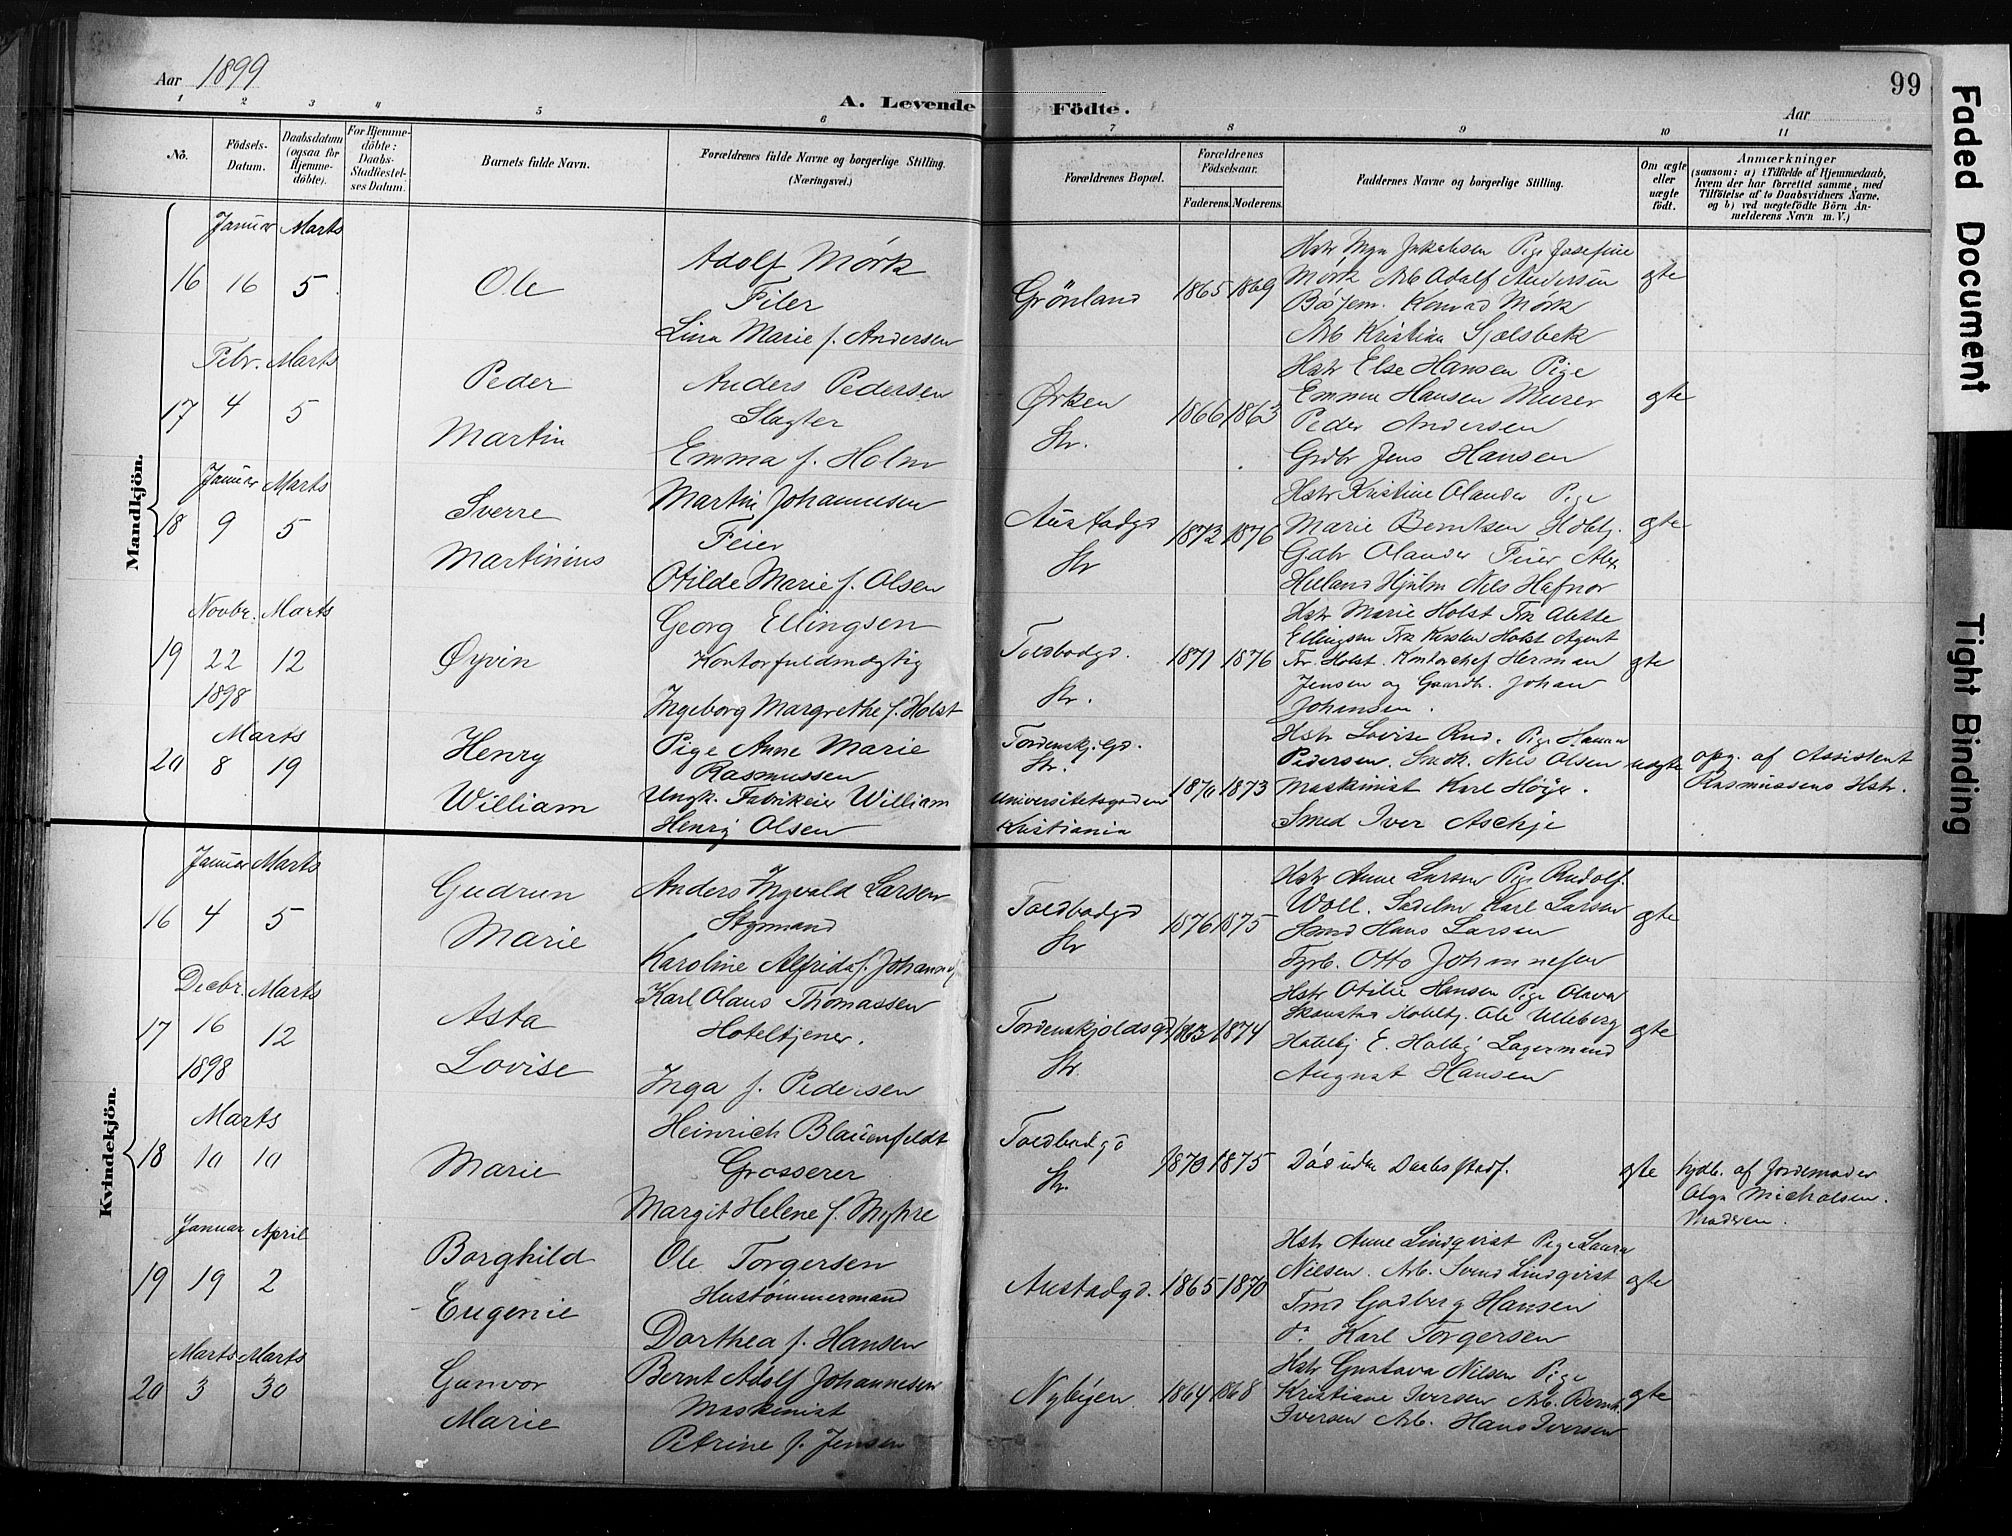 Aar 1899
A. Levende Födte.
99
Aar
1 2 3 4 5 6 7 8 9 10 11
No.
Födsels-
Datum.
Daabsdatum
(ogsaa for
Hjemme-
döbte).
For Hjemme-
döbte:
Daabs-
Stadfæstel-
ses Datum.
Barnets fulde Navn.
Forældrenes fulde Navne og borgerlige Stilling.
(Næringsvei.)
Forældrenes Bopæl.
Forældrenes
Födselsaar.
Faderens. Moderens.
Faddernes Navne og borgerlige Stilling.
Om ægte
eller
uægte
födt.
Anmærkninger
(saasom: a) i Tilfælde af Hjemmedaab,
hvem der har forrettet samme, med
Tilföielse af to Daabsvidners Navne,
og b) ved uægtefödte Börn An-
melderens Navn m. V.)
Mandkjön.
Januar Marts
16 16 5
Ole
Adolf Mörk
Filer
Lina Marie f. Andersen
Grönland
1865 1869
Hstr Inga Jakobsen Pige Josefine
Mörk Arb Adolf Andersen
Konrad Mörk
Arb Kristian
gte
Febr. Marts
17 4 5
Peder
Martin
Anders Pedersen
Slagter
Emma f. Holm
Örken
Str.
1866 1863
Hstr Else Hansen Pige
Emma Hansen Murer
Peder Andersen
Grdbr Jens Hansen
gte
Januar Marts
18 9 5
Sverre
Martinius
Martin Johannesen
Feier
Otilde Marie f. Olsen
Austadgd
Str
1872 1876
Hstr Kristine Olander Pige
Marie Berntsen
Olander Feier Alex
Hjulm Nils Hafnor
gte
Novbr. Marts
19 22 12
1898
Øyvin
Georg Ellingsen
Kontorfuldmægtig
Ingeborg Margrethe f. Holst
Toldbodgd.
Str.
1871 1876
Hstr Marie Holst Frk Alette
Ellingsen Frk Kirsten Holst Agent
Holst. Kontorchef Herman
Jensen og Gaardb. Johan
Johansen.
gte
Marts
20 8 19
Henry
William
Pige Anne Marie
Rasmussen
Ungk. Fabrikeier William
Henry Olsen
Tordenskj. Gd.
Str.
Universitetsgaden
Kristiania
1870 1873
Hstr Lovise Rud. Pige Hanna
Pedersen. Nils Olsen
Maskinist Karl Höyer.
Smed Iver Askje
uegte
opg. af Assistent
Rasmussens Hstr.
Kvindekjön.
Januar Marts
16 4 5
Gudrun
Marie
Anders Ingvald Larsen
Styrmand
Karoline Alfrida f. Johannes.
Toldbodgd
Str
1876 1875
Hstr Anne Larsen Pige Rudolf.
Woll. Karl Larsen
Smed Hans Larsen
Fyrb. Otto Johannesen
gte
Decbr. Marts
17 16 12
1898
Asta
Lovise
Karl Olaus Thomassen
Hoteltjener.
Inga f. Pedersen
Tordenskjoldsgd
Str.
1863 1874
Hstr Otilie Hansen Pige Olava
Ole Ulleberg
E. Holby Lagermand
August Hansen
gte
Marts
18 10 10
Marie
Heinrich Blauenfeldt
Grosserer
Margit Helene f. Myhre
Toldbodgd
Str.
1870 1875
Död uden Daabs stadf.
gte
hjdb. af Jordemoder
Olga Micholsen.
Moderen.
Januar April
19 19 2
Borghild
Eugenie
Ole Torgersen
Hustømmermand
Dorthea f. Hansen
Austadgd.
1865 1870
Hstr Anne Lindqvist Pige Laura
Nielsen. Arb. Svend Lindqvist
Tmd Godberg Hansen
do Karl Torgersen
gte
Marts Marts
20 3 30
Gunvor
Marie
Bernt Adolf Johannesen
Maskinist
Petrine f. Jensen
Nybyen
1864 1868
Hstr Gustava Nilsen Pige
Kristiane Iversen Arb. Bernh.
Iversen Arb. Hans Iversen
gte
Faded Document
Tight Binding